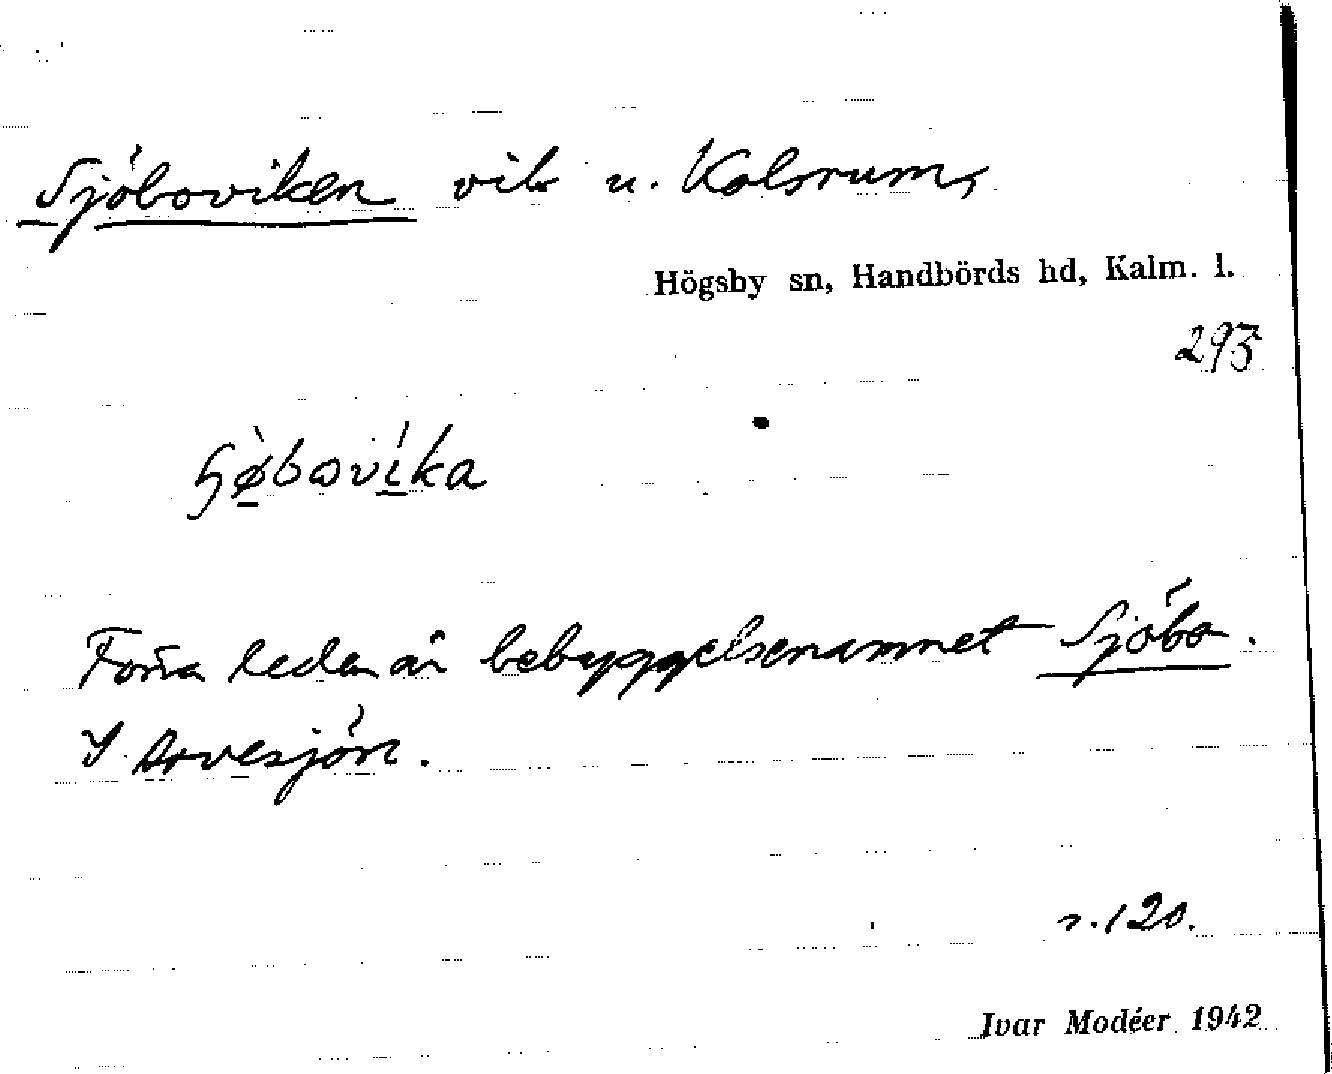 Sjöboviken vik u. Kalsrum,
Högsby sn, Handbörds hd, Kalm. l.
293
ɧø̀bωvíka
Förra leden är bebyggelsenamnet Sjöbo.
I Arvesjön.
s. 120.
Ivar Modéer 1942